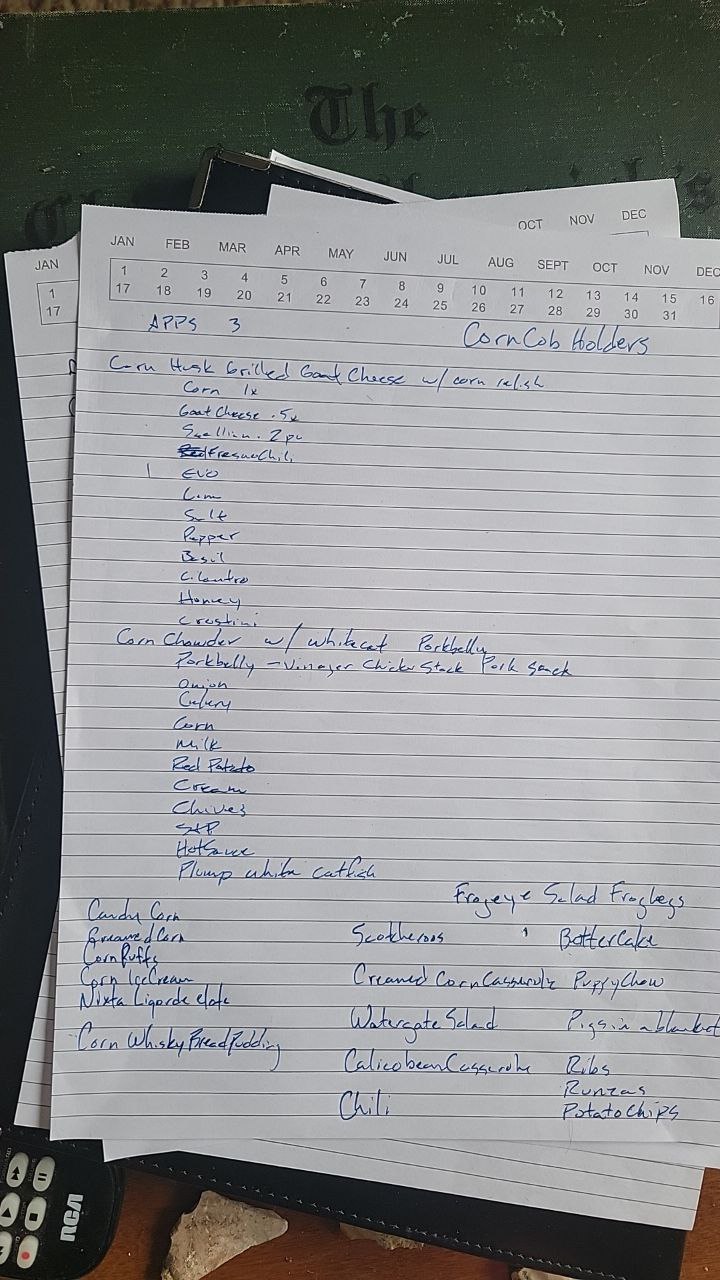 The
JAN FEB MAR APR MAY JUN JUL AUG SEPT OCT NOV DEC
OCT NOV DEC
JAN
1
17
1 2 3 4 5 6 7 8 9 10 11 12 13 14 15 16
17 18 19 20 21 22 23 24 25 26 27 28 29 30 31
APPS 3
CornCob Holders
Corn Husk Grilled Goat Cheese w/ corn relish
Corn 1x
Goat Cheese .5x
Scallion .2
Fresno Chili
EVO
Salt
Pepper
Basil
Cilantro
Honey
Crostini
Corn Chowder w/ whitecat Porkbelly
Porkbelly - Vinager Chicken Stock Pork
Onion
Celery
Corn
Milk
Red Potato
Cream
Chives
S&P
HotSauce
Plump white catfish
Frogeye Salad Froglegs
Candy Corn
Creamed Corn
Corn Puffs
Corn IceCream
Nixta Licor de elote
Corn Whisky Bread Pudding
Scotcheroos
Creamed Corn Casserole
Watergate Salad
Calicobean Casserole
Chili
ButterCake
PuppyChow
Pigs in a blanket
Ribs
Runzas
Potato Chips
RCA